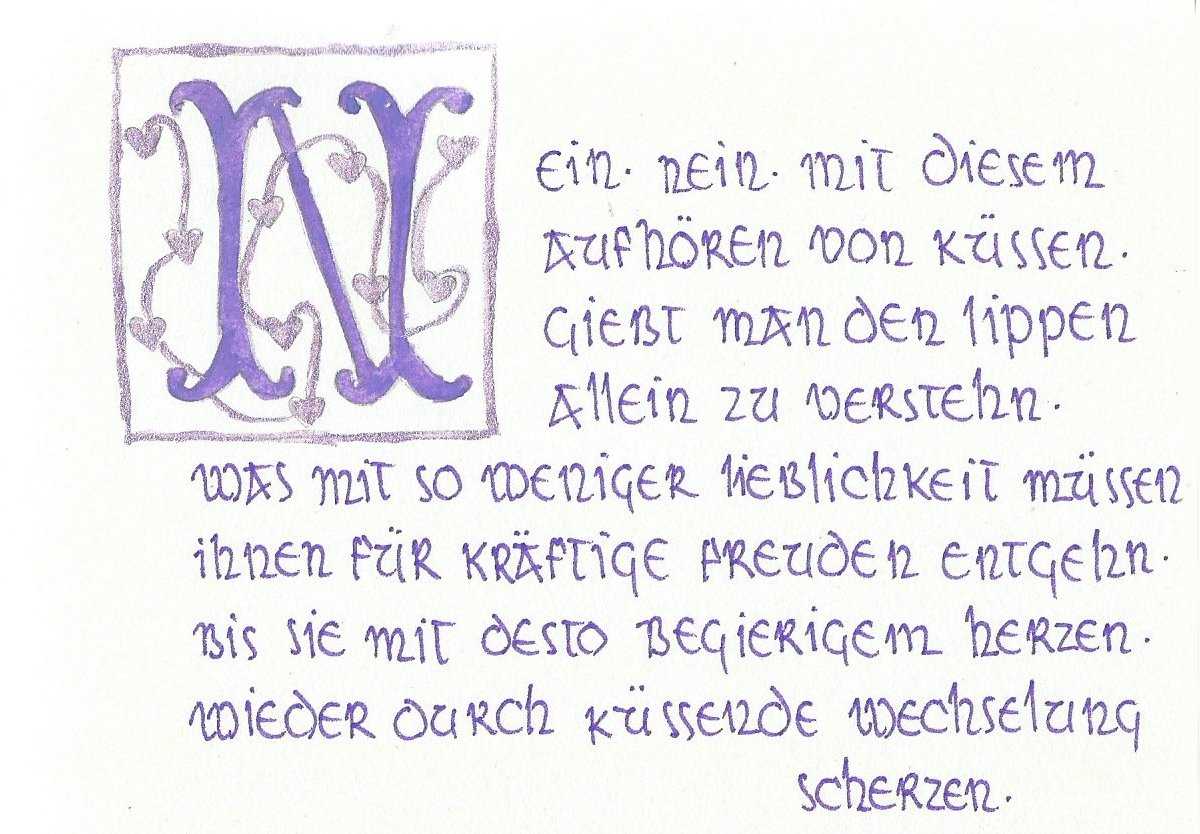 Nein. nein. mit diesem
aufhören von küssen.
gießt man den lippen
allein zu verstehn.
was mit so weniger ließlichkeit müssen
ihnen für kräftige freuden entgehn.
bis sie mit desto begierigem herzen.
wieder durch küssende wechselung
scherzen.